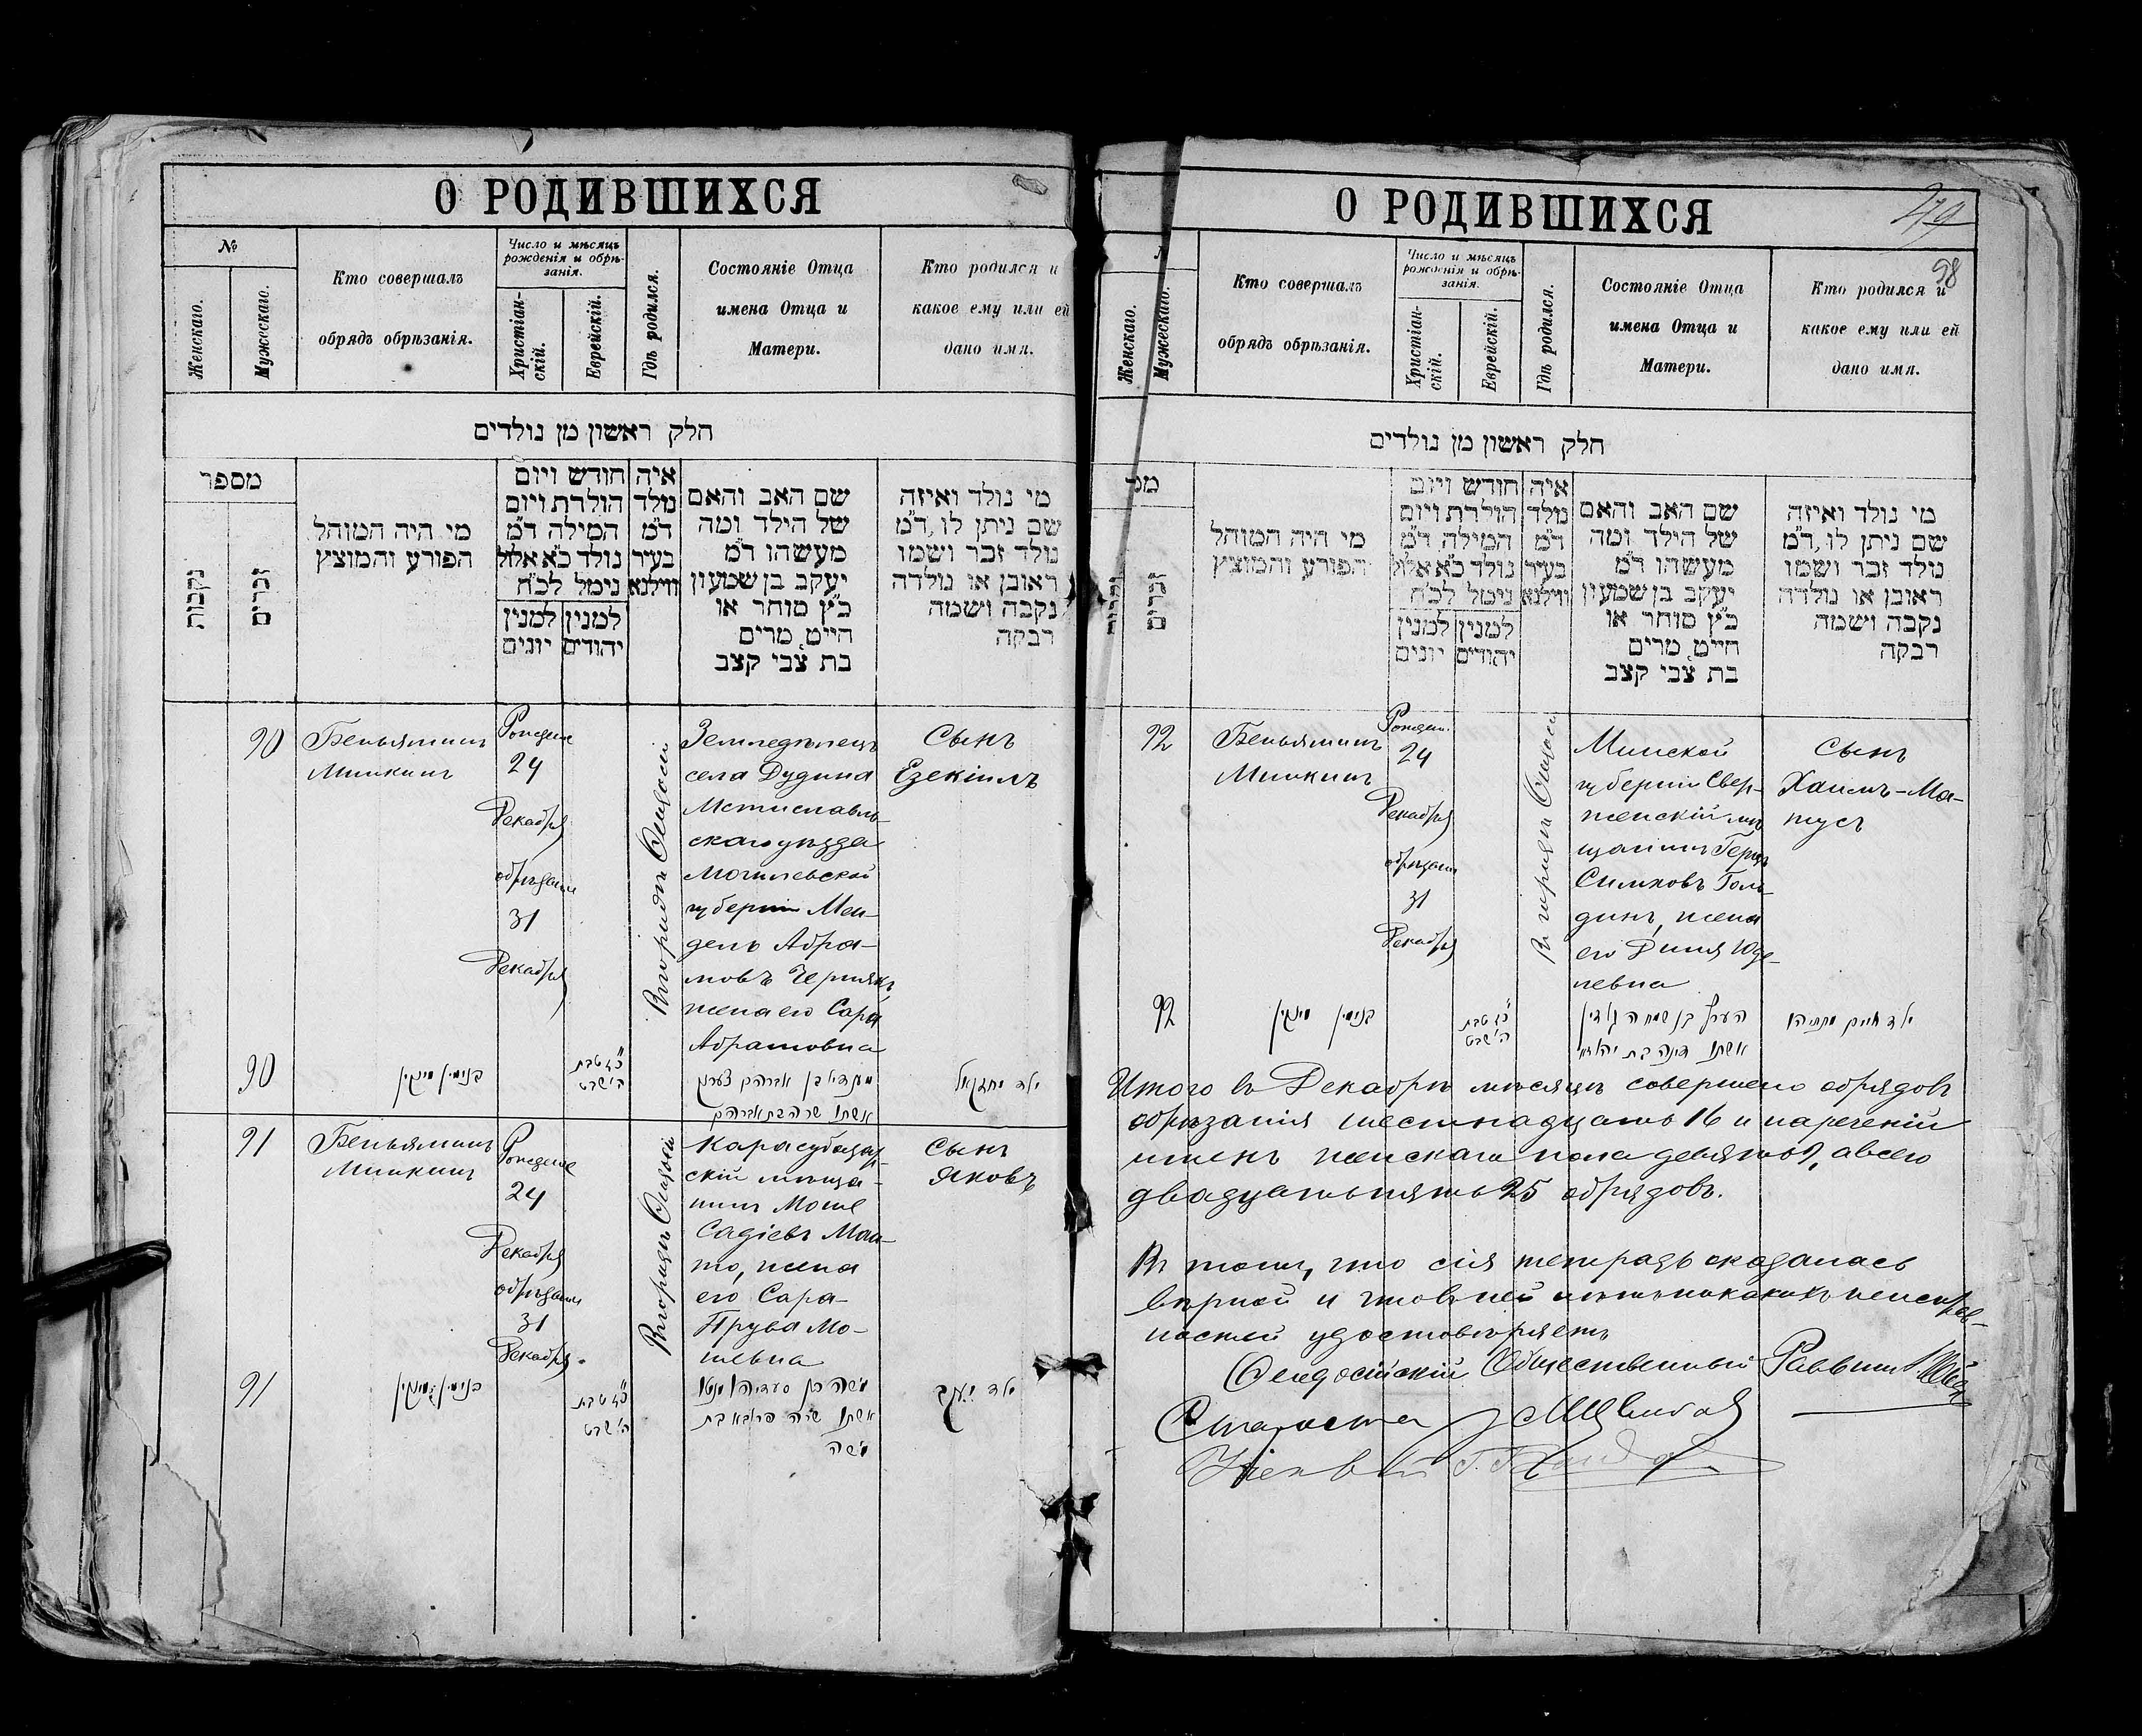 О РОДИВШИХСЯ
№
Женскаго.
Мужескаго.
Кто совершалъ
обрядъ обрѣзанія.
Число и мѣсяцъ
рожденія и обрѣ-
занія.
Христіан-
скій.
Еврейскій.
Гдѣ родился.
Состояніе Отца
имена Отца и
Матери.
Кто родился и
какое ему или ей
дано имя.
חלק ראשון מן נולדים
מספר
נקבות
זכרים
מי היה המוהל
הפורע והמוצץ
חודש ויום
הולדת ויום
המילה ד״מ
נולד כ״א אלול
נימל לכ״ח
למנין
יהודים
למנין
יונים
איה
נולד
ד״מ
בעיר
ווילנא
שם האב והאם
של הילד ומה
מעשהו ד״מ
יעקב בן שמעון
כ״ץ סוחר או
חייט, מרים
בת צבי קצב
מי נולד ואיזה
שם ניתן לו, ד״מ
נולד זכר ושמו
ראובן או נולדה
נקבה ושמה
רבקה
90
Беньяминъ
Минкинъ
Рожденіе
24
Декабря
обрѣзаніе
31
Декабря
Земледѣлецъ
села Дудина
Мстиславль-
скаго уѣзда
Могилевской
губерніи Мен-
дель Абра-
мовъ Чернякъ,
жена его Сара
Абрамовна
Сынъ
Езекіилъ
90
בנימין מינקין
כ״ג טבת
אשתו שרה בת אברהם
ילד יחזקאל
91
Беньяминъ
Минкинъ
Рожденіе
24
Декабря
обрѣзаніе
31
Декабря.
Карасубазар-
скій мѣща-
нинъ Моше
Садіевъ Ман-
то, жена
его Сара-
Прува Мо-
шевна
Сынъ
Яковъ
91
בנימין מינקין
כ״ג טבת
משה בן סעדיהו מנטו
אשתו שרה פרובא בת
משה
ילד יעקב
О РОДИВШИХСЯ
279
98
Женскаго.
Мужескаго.
Кто совершалъ
обрядъ обрѣзанія.
Число и мѣсяцъ
рожденія и обрѣ-
занія.
Христіан-
скій.
Еврейскій.
Гдѣ родился.
Состояніе Отца
имена Отца и
Матери.
Кто родился и
какое ему или ей
дано имя.
חלק ראשון מן נולדים
זכרים
מי היה המוהל
הפורע והמוצץ
חודש ויום
הולדת ויום
המילה ד״מ
נולד כ״א אלול
נימל לכ״ח
למנין
יהודים
למנין
יונים
איה
נולד
ד״מ
בעיר
ווילנא
שם האב והאם
של הילד ומה
מעשהו ד״מ
יעקב בן שמעון
כ״ץ סוחר או
חייט, מרים
בת צבי קצב
מי נולד ואיזה
שם ניתן לו, ד״מ
נולד זכר ושמו
ראובן או נולדה
נקבה ושמה
רבקה
92
Беньяминъ
Минкинъ
Рожденіе
24
Декабря
обрѣзаніе
31
Декабря
Минской
губерніи Свер-
женскій мѣ-
щанинъ Герцъ
Симковъ Голь-
динъ, жена
его Диня Юде-
левна
Сынъ
Хаимъ-Ма-
тусъ
92
בנימין מינקין
כ״ג טבת
בן שמחה גאלדין
אשתו דינה בת
ילד חיים מתתיהו
Итого въ Декабрѣ мѣсяцѣ совершено обрядовъ
обрѣзанія шестнадцать 16 и нареченій
именъ женскаго пола девять 9, а всего
двадцать пять 25 обрядовъ.
Въ томъ, что сія тетрадь оказалась
вѣрной и что въ ней нѣтъ никакихъ неисправ-
ностей удостовѣряетъ
Ѳеодосійскій Общественный Раввинъ
Староста